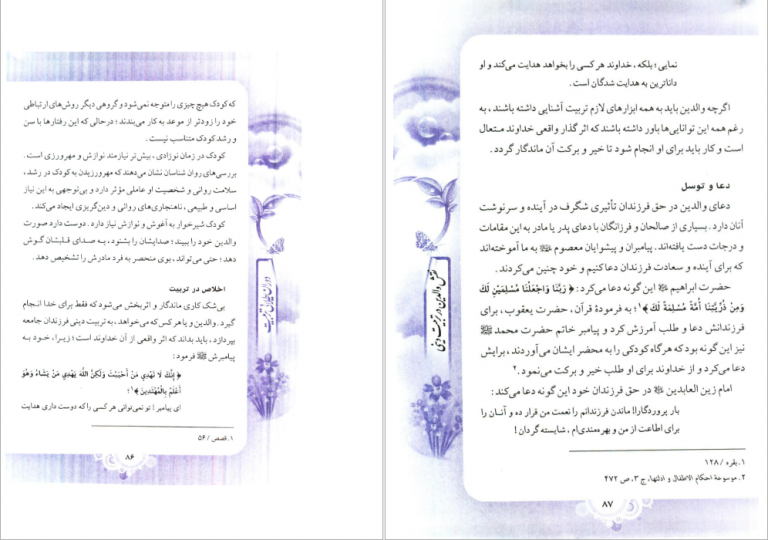 که کودک هیچ چیزی را متوجه نمی‌شود و گروهی دیگر روش‌های ارتباطی
خود را زودتر از موعد به کار می‌بندند؛ درحالی که این رفتارها با سن
و رشد کودک متناسب نیست.
کودک در زمان نوزادی، بیش‌تر نیازمند نوازش و مهرورزی است.
بررسی‌های روان شناسان نشان می‌دهند که مهرورزیدن به کودک در رشد،
سلامت روانی و شخصیت او عاملی مؤثر دارد و بی‌توجهی به این نیاز
اساسی و طبیعی، ناهنجاری‌های روانی و دین‌گریزی ایجاد می‌کند.
کودک شیرخوار به آغوش و نوازش نیاز دارد. دوست دارد صورت
والدین خود را ببیند؛ صدایشان را بشنود، به صدای قلبشان گوش
دهد؛ حتی می‌تواند، بوی منحصر به فرد مادرش را تشخیص دهد.
اخلاص در تربیت
بی‌شک کاری ماندگار و اثربخش می‌شود که فقط برای خدا انجام
گیرد. والدین و یا هر کس که می‌خواهد، به تربیت دینی فرزندان جامعه
بپردازد، باید بداند که اثر واقعی از آن خداوند است؛ زیرا، خود به
پیامبرش ﷺ فرمود:
﴿إِنَّكَ لَا تَهْدِی مَنْ أَحْبَبْتَ وَلَكِنَّ اللَّهَ یَهْدِی مَنْ یَشَاءُ وَهُوَ
أَعْلَمُ بِالْمُهْتَدِینَ﴾۱؛
ای پیامبر! تو نمی‌توانی هر کسی را که دوست داری هدایت
۱. قصص / ۵۶
۸۶
نمایی؛ بلکه، خداوند هر کسی را بخواهد هدایت می‌کند و او
داناترین به هدایت شدگان است.
اگرچه والدین باید به همه ابزارهای لازم تربیت آشنایی داشته باشند، به
رغم همه این توانایی‌ها باور داشته باشند که اثر گذار واقعی خداوند متعال
است و کار باید برای او انجام شود تا خیر و برکت آن ماندگار گردد.
دعا و توسل
دعای والدین در حق فرزندان تأثیری شگرف در آینده و سرنوشت
آنان دارد. بسیاری از صالحان و فرزانگان با دعای پدر یا مادر به این مقامات
و درجات دست یافته‌اند. پیامبران و پیشوایان معصوم به ما آموخته‌اند
که برای آینده و سعادت فرزندان دعا کنیم و خود چنین می‌کردند.
حضرت ابراهیم این گونه دعا می‌کرد: ﴿رَبَّنَا وَاجْعَلْنَا مُسْلِمَیْنِ لَكَ
وَمِنْ ذُرِّیَّتِنَا أُمَّةً مُسْلِمَةً لَكَ﴾۱؛ به فرمودهٔ قرآن، حضرت یعقوب، برای
فرزندانش دعا و طلب آمرزش کرد و پیامبر خاتم حضرت محمد ﷺ
نیز این گونه بود که هرگاه کودکی را به محضر ایشان می‌آوردند، برایش
دعا می‌کرد و از خداوند برای او طلب خیر و برکت می‌نمود.۲
امام زین العابدین در حق فرزندان خود این گونه دعا می‌کند:
بار پروردگارا! ماندن فرزندانم را نعمت من قرار ده و آنان را
برای اطاعت از من و بهره‌مندی‌ام، شایسته گردان!
نقش والدین در تربیت دینی
۱. بقره / ۱۲۸
۲. موسوعة احکام الاطفال و ادلتها، ج ۳، ص ۴۷۲
۸۷